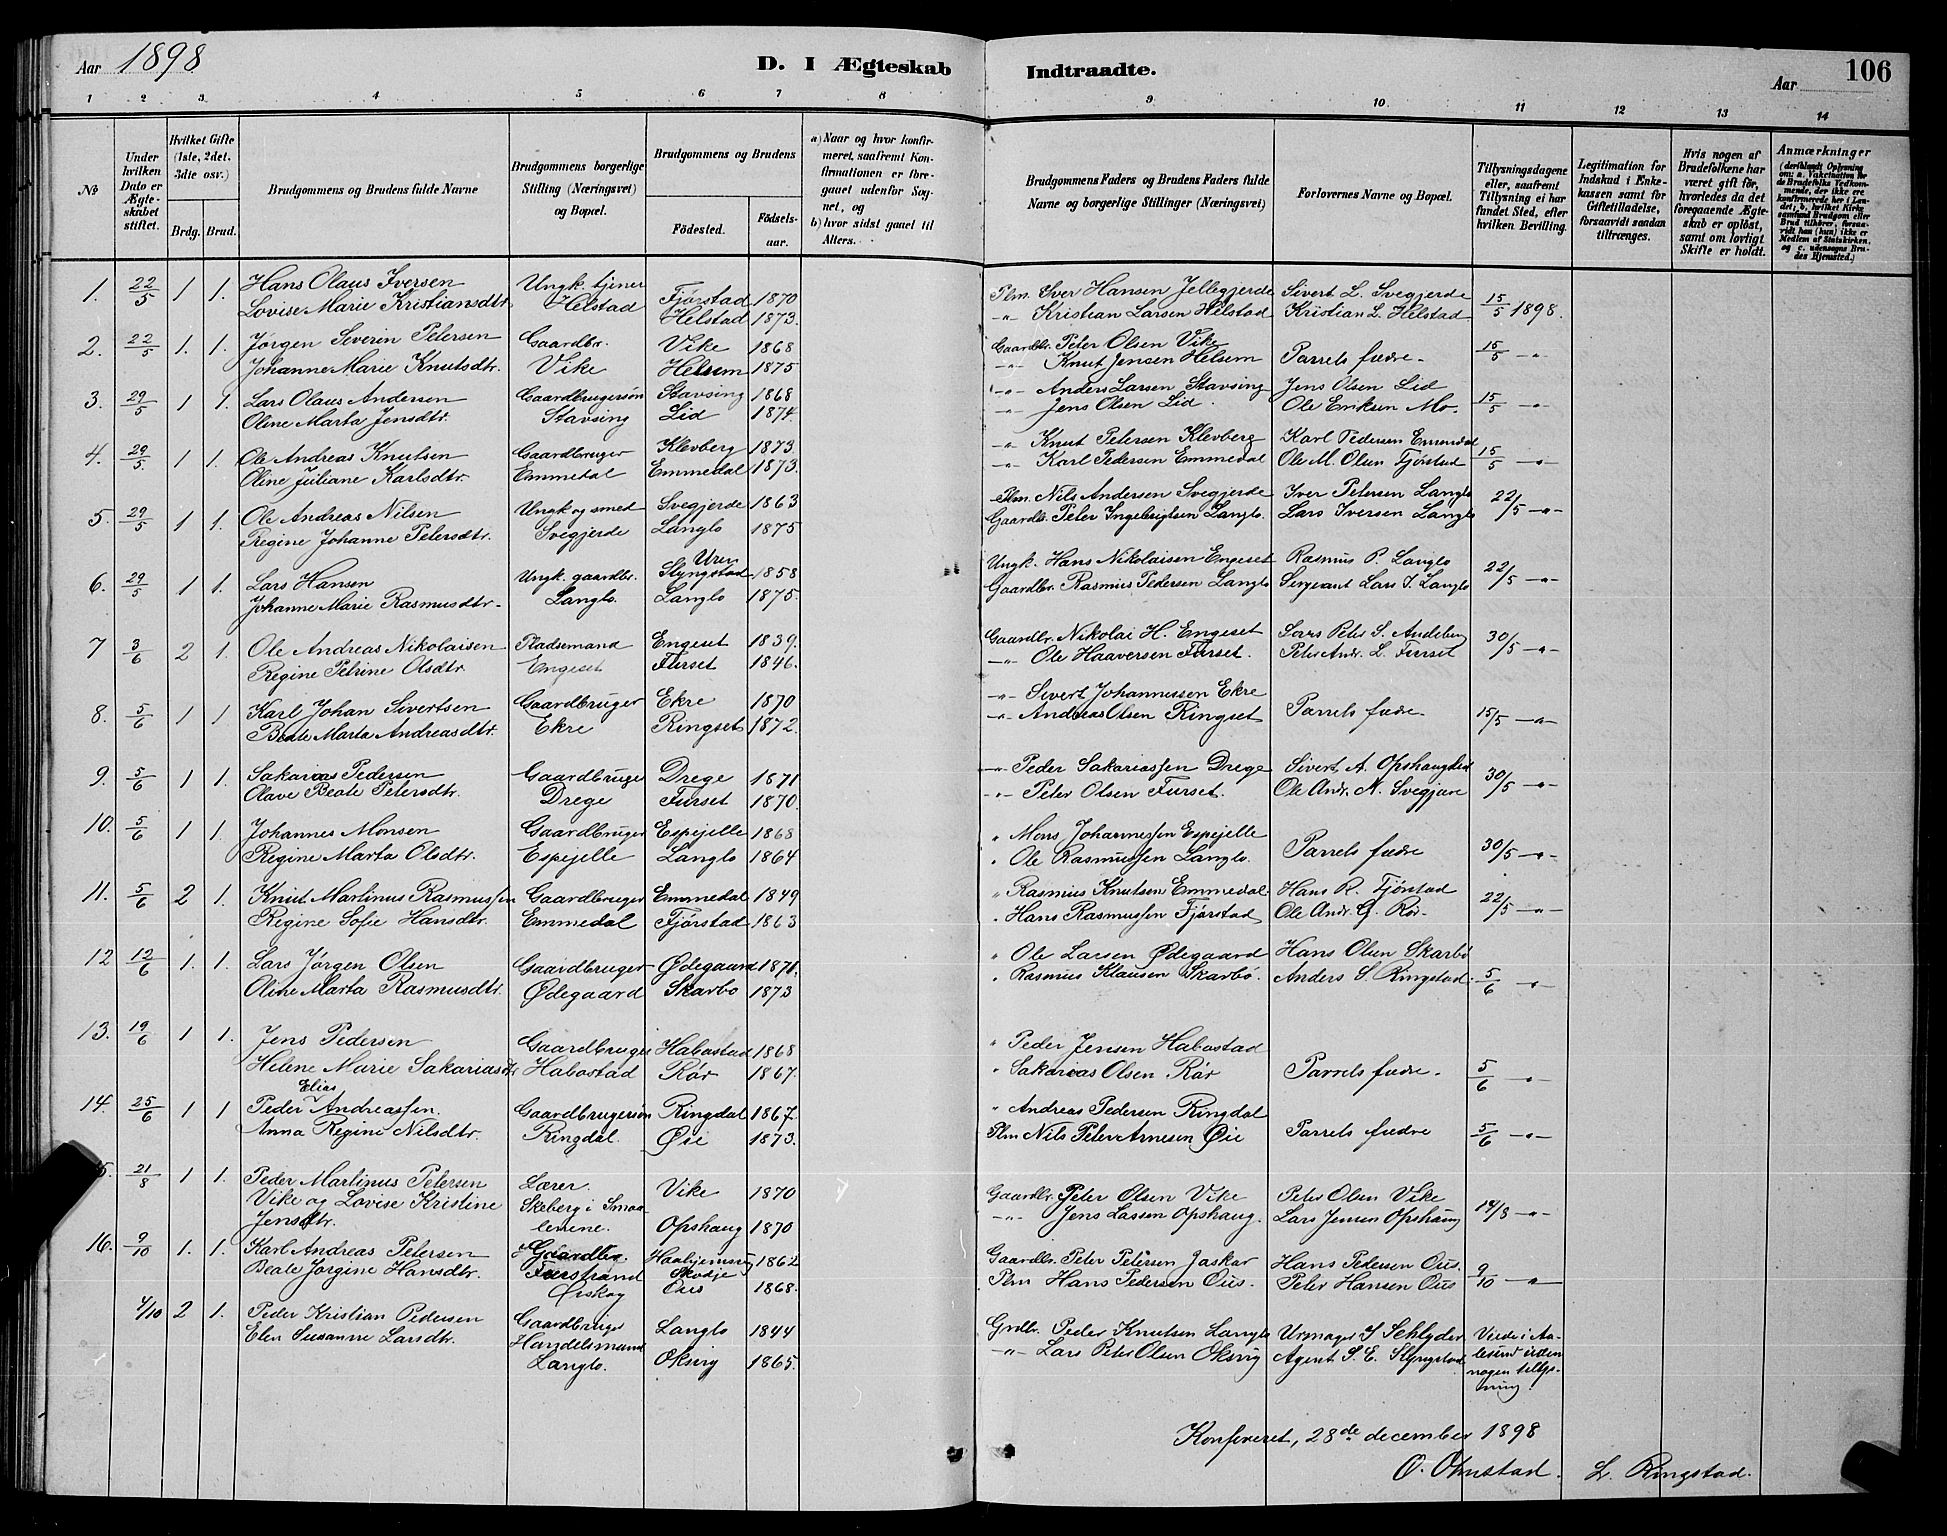 Aar 1898
D. I Ægteskab Indtraadte.
Aar
106
1 2 3 4 5 6 7 8 9 10 11 12 13 14
No
Under hvilken Dato er Ægteskabet stiftet.
Hvilket Gifte (1ste, 2det, 3die osv.)
Brdg. Brud.
Brudgommens og Brudens fulde Navne
Brudgommens borgerlige Stilling (Næringsvei) og Bopæl.
Brudgommens og Brudens
Födested. Födselsaar.
a) Naar og hvor konfirmeret, saafremt Konfirmationen er foregaaet udenfor Sognet, og
b) hvor sidst gaaet til Alters.
Brudgommens Faders og Brudens Faders fulde Navne og borgerlige Stillinger (Næringsvei)
Forlovernes Navne og Bopæl.
Tillysningsdagene eller, saafremt Tillysning ei har fundet Sted, efter hvilken Bevilling.
Legitimation for Indskud i Enkekassen samt for Giftetilladelse, forsaavidt saadan tiltrænges.
Hvis nogen af Brudefolkene har været gift för, hvorledes da det foregaaende Ægteskab er oplöst, samt om lovligt Skifte er holdt.
Anmærkninger
(deriblandt Oplysning om: a. Vakcination for de Brudefolks Vedkommende, der ikke ere konfirmerede her i Landet; b. hvilket Kirkesamfund Brudgom eller Brud tilhörer, forsaavidt han (hun) ikke er Medlem af Statskirken, og c. udensogns Brudes Hjemsted.)
1. 22/5 1 1. Hans Olaus Iversen Ungk. tjener Fjørstad 1870 Plm. Iver Hansen Jellegjerde Sivert L. Svegjerde 15/5 1898.
Lovise Marie Kristiansdtr Helstad Helstad 1873. -"- Kristian Larsen Helstad Kristian L. Helstad
2. 22/5 1. 1. Jørgen Severin Petersen Gaardbr. Vike 1868 Gaardbr. Peter Olsen Vike Parrets fædre 15/5 -"-
Johanne Marie Knutsdtr. Vike Helsem 1875 -"- Knut Jensen Helsem
3. 29/5 1 1. Lars Olaus Andersen Gaardbrugersøn Stavsing 1868 -"- Anders Larsen Stavsing Jens Olsen Lid 15/5 -"-
Oline Marta Jensdtr. Stavsing Lid 1874. -"- Jens Olsen Lid. Ole Eriksen Mo.
4. 29/5 1 1. Ole Andreas Knutsen Gaardbruger Klevberg 1873. -"- Knut Petersen Klevberg Karl Pedersen Emmedal 15/5 -"-
Oline Juliane Karlsdtr. Emmedal Emmedal 1873. -"- Karl Pedersen Emmedal Ole M. Olsen Fjørstad
5. 29/5 1 1. Ole Andreas Nilsen Ungk og smed Svegjerde 1863 Plm. Nils Andersen Svegjerde Iver Petersen Langlo 22/5 -"-
Regine Johanne Petersdtr. Svegjerde Langlo 1875 Gaardbr. Peter Ingebrigtsen Langlo. Lars Iversen Langlo
6. 29/5 1 1. Lars Hansen Ungk. gaardbr. Uren Slyngstad 1858 Ungk. Hans Nikolaisen Engeset Rasmus P. Langlo 22/5 -"-
Johanne Marie Rasmusdtr. Langlo. Langlo 1875. Gaardbr. Rasmus Pedersen Langlo Sergeant Lars I. Langlo
7 3/6 2 1. Ole Andreas Nikolaisen Pladsemand Engeset 1839. Gaardbr. Nikolai H. Engeset Lars Peter S. 30/5 -"-
Regine Petrine Olsdtr. Engeset Furset 1846. -"- Ole Haaversen Furset. Peter Andr. L. Furset
8. 5/6 1 1 Karl Johan Sivertsen Gaardbruger Ekre 1870 -"- Sivert Johannessen Ekre Parrets fædre 15/5 -"-
Beate Marta Andreasdtr. Ekre Ringset 1872. -"- Andreas Olsen Ringset
9. 5/6 1 1. Sakarias Pedersen Gaardbruger Drege 1871 -"- Peder Sakariassen Drege Sivert A. 30/5 -"-
Olave Beate Petersdtr. Drege Furset 1870. -"- Peter Olsen Furset. Ole Andr. N. Svegjære
10. 5/6 1 1. Johannes Monsen Gaardbruger Espejelle 1868 " Mons Johannessen Espejelle Parrets fædre 30/5 -"-
Regine Marta Olsdtr. Espejelle Langlo 1864 " Ole Rasmussen Langlo.
11. 5/6 2 1. Knut Martinus Rasmussen Gaardbruger Emmedal 1849 " Rasmus Knutsen Emmedal Hans R. Fjørstad 22/5 -"-
Regine Sofie Hansdtr. Emmedal Fjørstad 1863 " Hans Rasmussen Fjørstad Ole Andr. G. Rør.
12 12/6 1. 1. Lars Jørgen Olsen Gaardbruger Ødegaard 1871. " Ole Larsen Ødegaard Hans Olsen Skarbø
Oline Marta Rasmusdtr. Ødegaard Skarbø 1873 " Rasmus Klausen Skarbø. Anders S. Ringstad. 5/6 -"-
13. 19/6 1 1. Jens Pedersen Gaardbruger Habostad 1868 " Peder Jensen Habostad Parrets fædre 5/6 -"-
Helene Marie Sakariasdtr Habostad Rør 1867. " Sakarias Olsen Rør
14. 25/6 1 1 Peder Elias Andreassen. Gaardbrugersøn Ringdal 1867. " Andreas Pedersen Ringdal Parrets fædre 5/6 -"-
Anna Regine Nilsdtr. Ringdal. Øie 1873. Plm Nils Peter Arnesen Øie
5. 21/8 1 1. Peder Martinus Petersen Lærer Vike 1870 Gaardbr. Peter Olsen Vike Peter Olsen Vike 14/8 -"-
Vike og Lovise Kristine Skeberg i Smaa-
Jensdtr. lenene. Opshaug 1870 -"- Jens Lassen Opshaug. Lars Jensen Opshaug
16. 9/10 1. 1. Karl Andreas Petersen Gaardbr. Haahjemsvig 1862 Gaardbr. Peter Petersen Jaskar Hans Pedersen Ous. 9/10 -"-
Beate Jørgine Hansdtr. Furstrand Skodje
Ørskog Ous 1868. Plm Hans Pedersen Ous. Peter Hansen Ous
4/10 2 1. Peder Kristian Pedersen Gaardbruger Langlo 1844 Grdbr. Peder Knutsen Langlo Urmager S Schlyder Viede i Aa-
Elen Susanne Larsdtr. Handelsmand -"- Lars Peter Olsen Oksvig Agent S. E. Slyngstad lesund uden
Langlo. Oksvig 1865. nogen tillys-
ning
Konfereret, 28de december 1898
O. Olmstad. L. Ringstad.